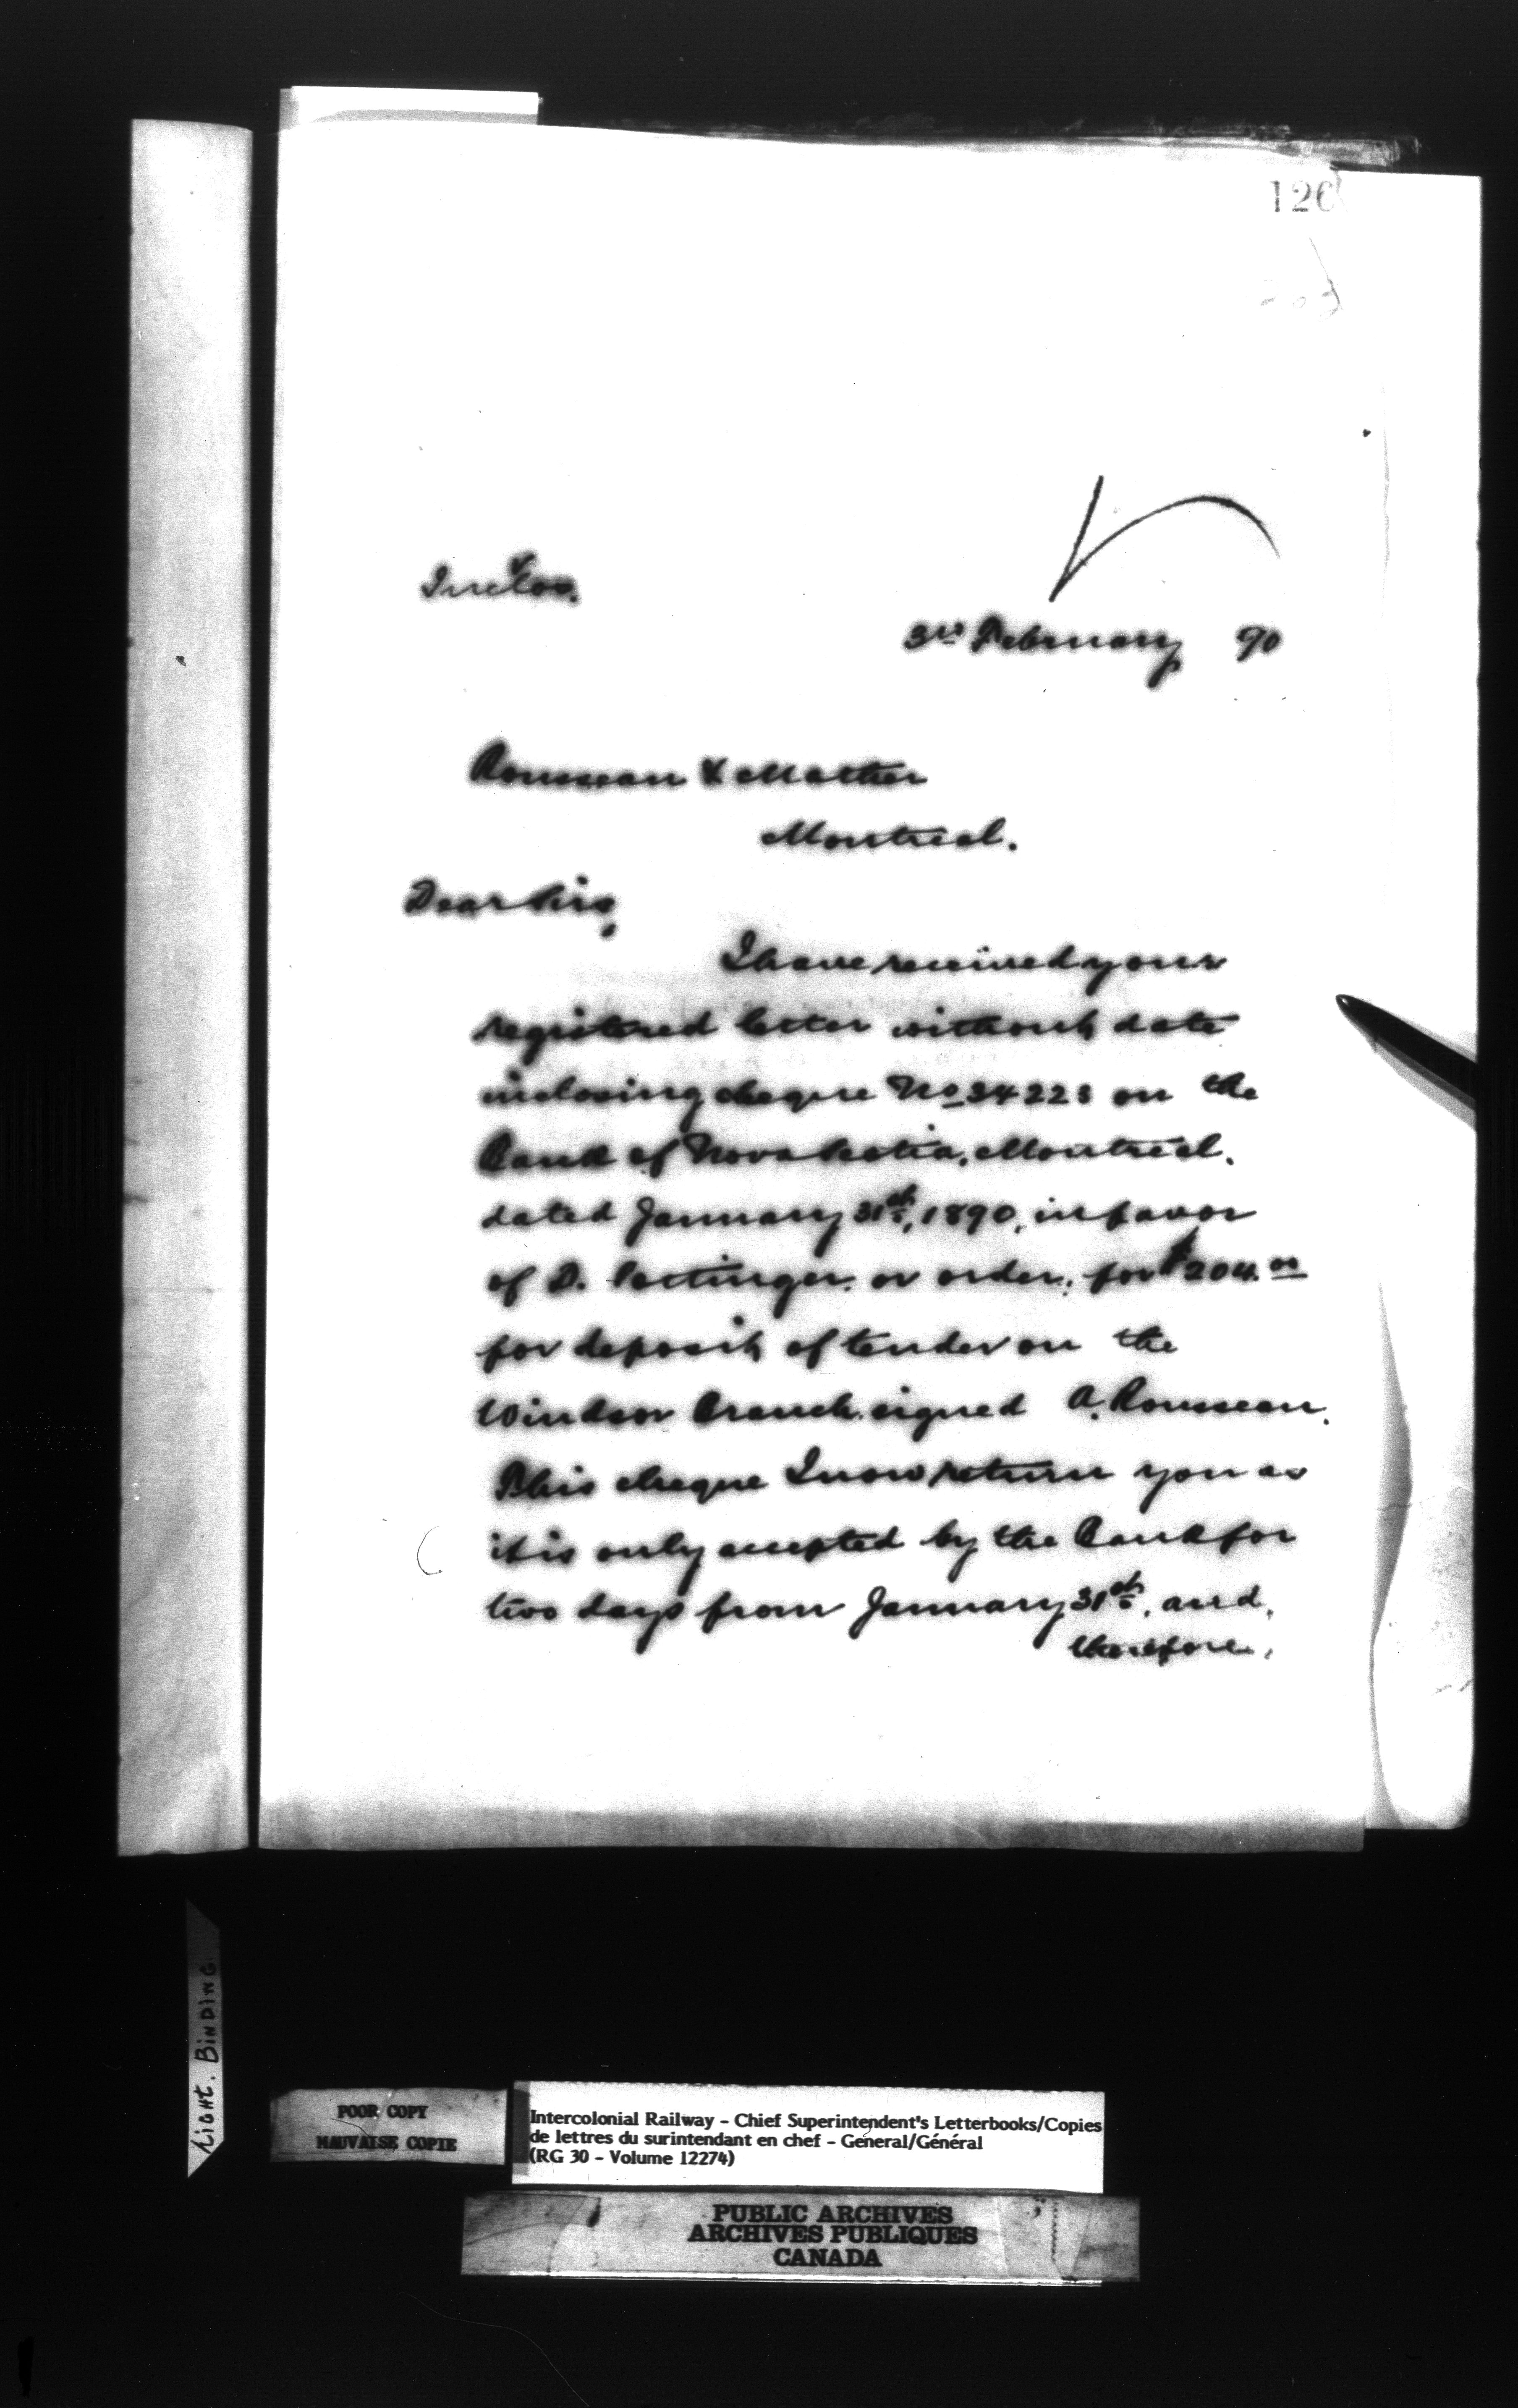 126
Inclos.
3rd February 90
Rousseau & Mather
Montreal.
Dear Sirs,
I have received your
registered letter without date
inclosing cheque No 34223 on the
Bank of Nova Scotia, Montreal,
dated January 31st, 1890, in favor
of D. Pottinger or order, for $204.00
for deposit of tender on the
Windsor Branch signed A. Rousseau.
This cheque I now return you as
it is only accepted by the Bank for
two days from January 31st, and,
therefore,
LIGHT. BINDING
POOR COPY
MAUVAISE COPIE
Intercolonial Railway - Chief Superintendent's Letterbooks/Copies
de lettres du surintendant en chef - General/Général
(RG 30 - Volume 12274)
PUBLIC ARCHIVES
ARCHIVES PUBLIQUES
CANADA